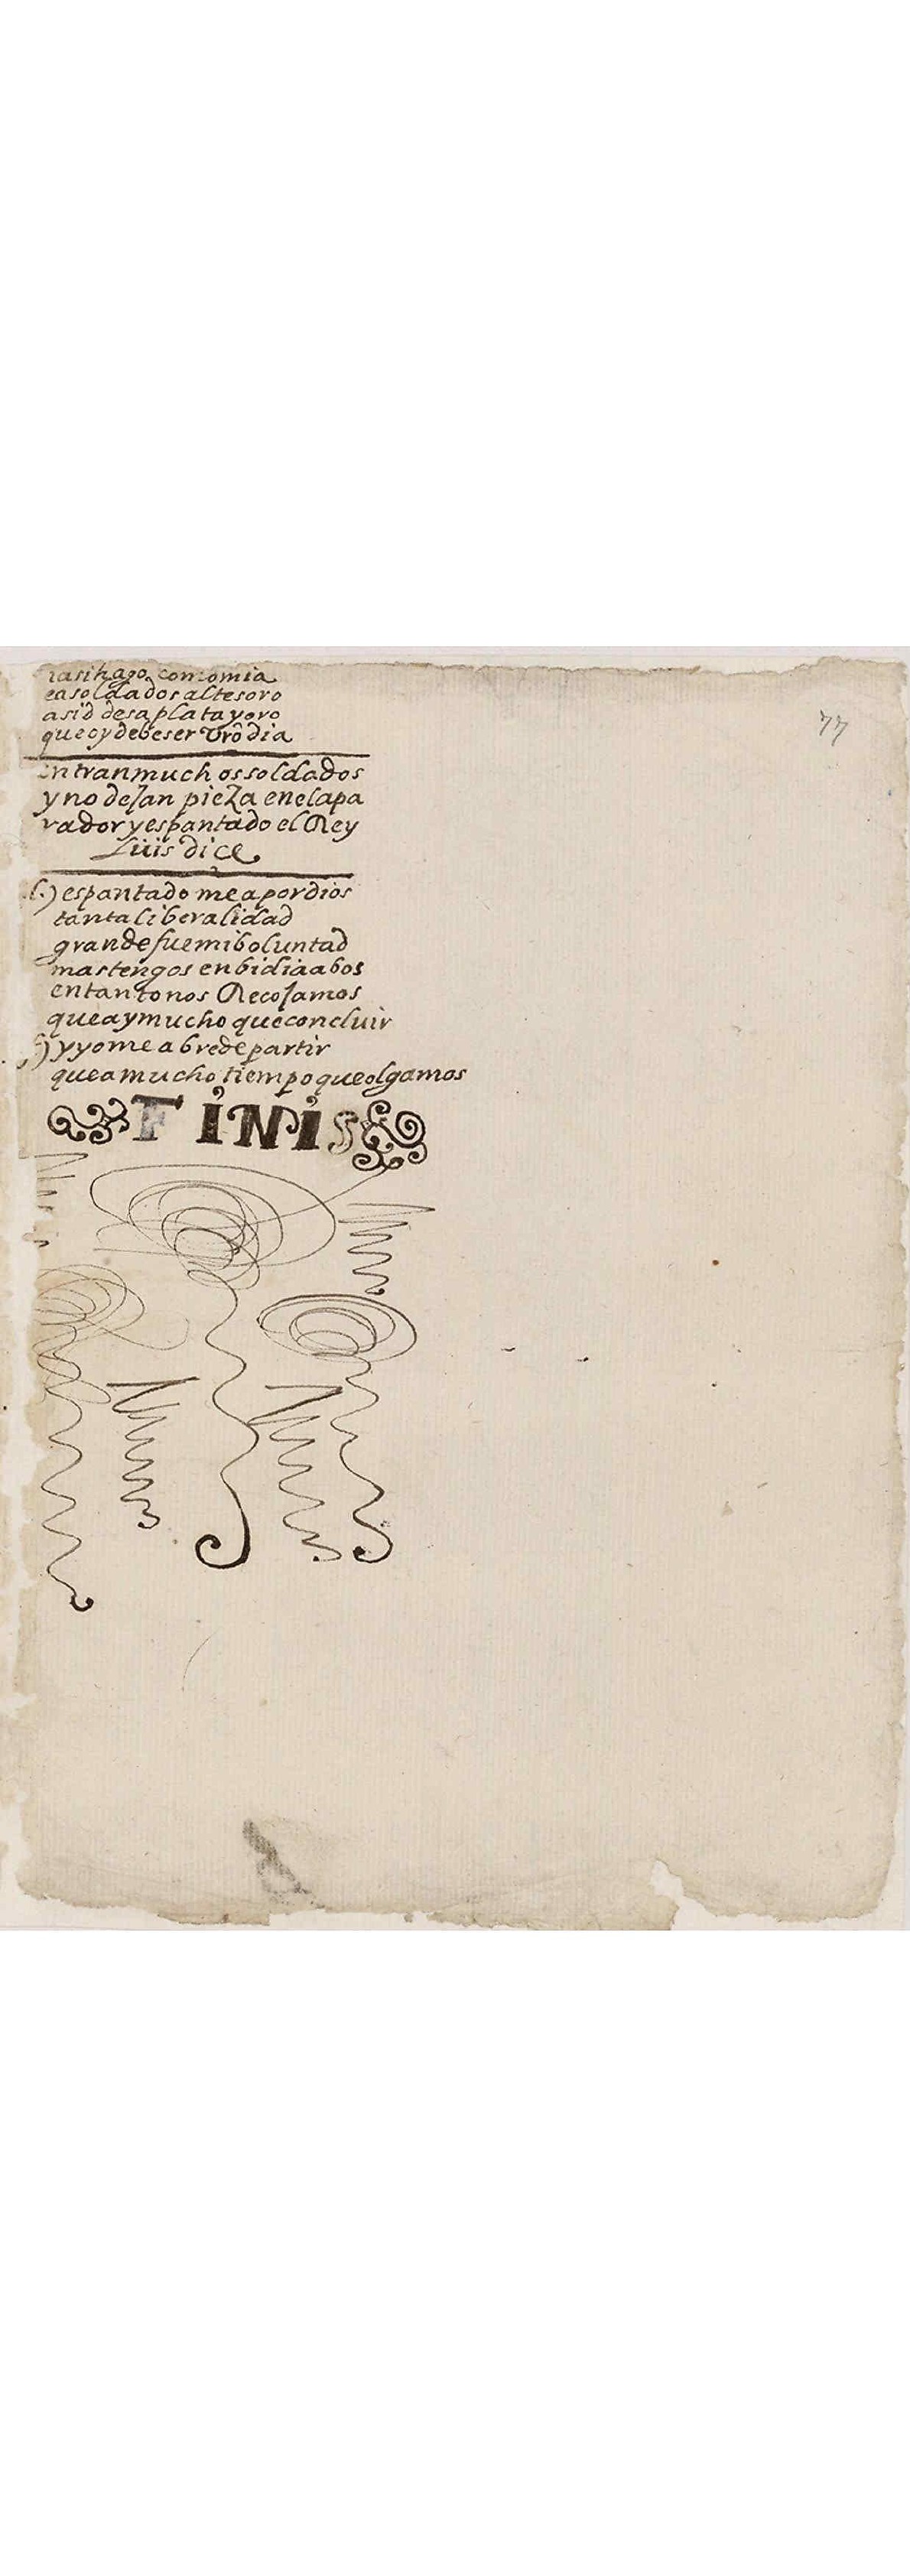 iasihago comomia
ea soldados altesoro
asid desa plata yoro
que oy debe ser vrõ dia
77
entran muchos soldados
y no dejan pieza en el apa
rador y espantado el Rey
Luis dice
l.) espantado me a por dios
tanta liberalidad
grande fue mi boluntad
mas tengos enbidia a bos
entanto nos Recojamos
que ay mucho que concluir
y yo me abre de partir
que a mucho tiempo que olgamos
FINIS